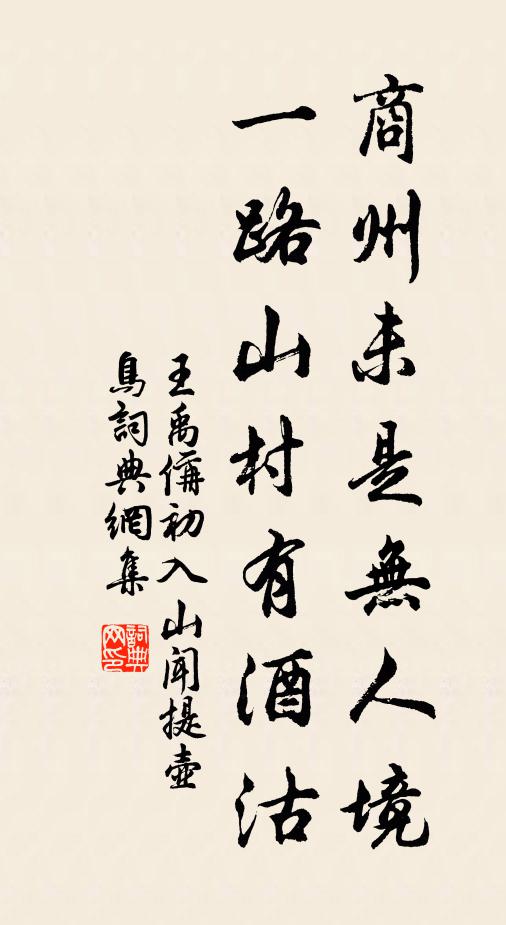 商州未是無人境
一路山村有酒沽
王禹偁初入山聞提壺
鳥詞典網集
詞典
网印